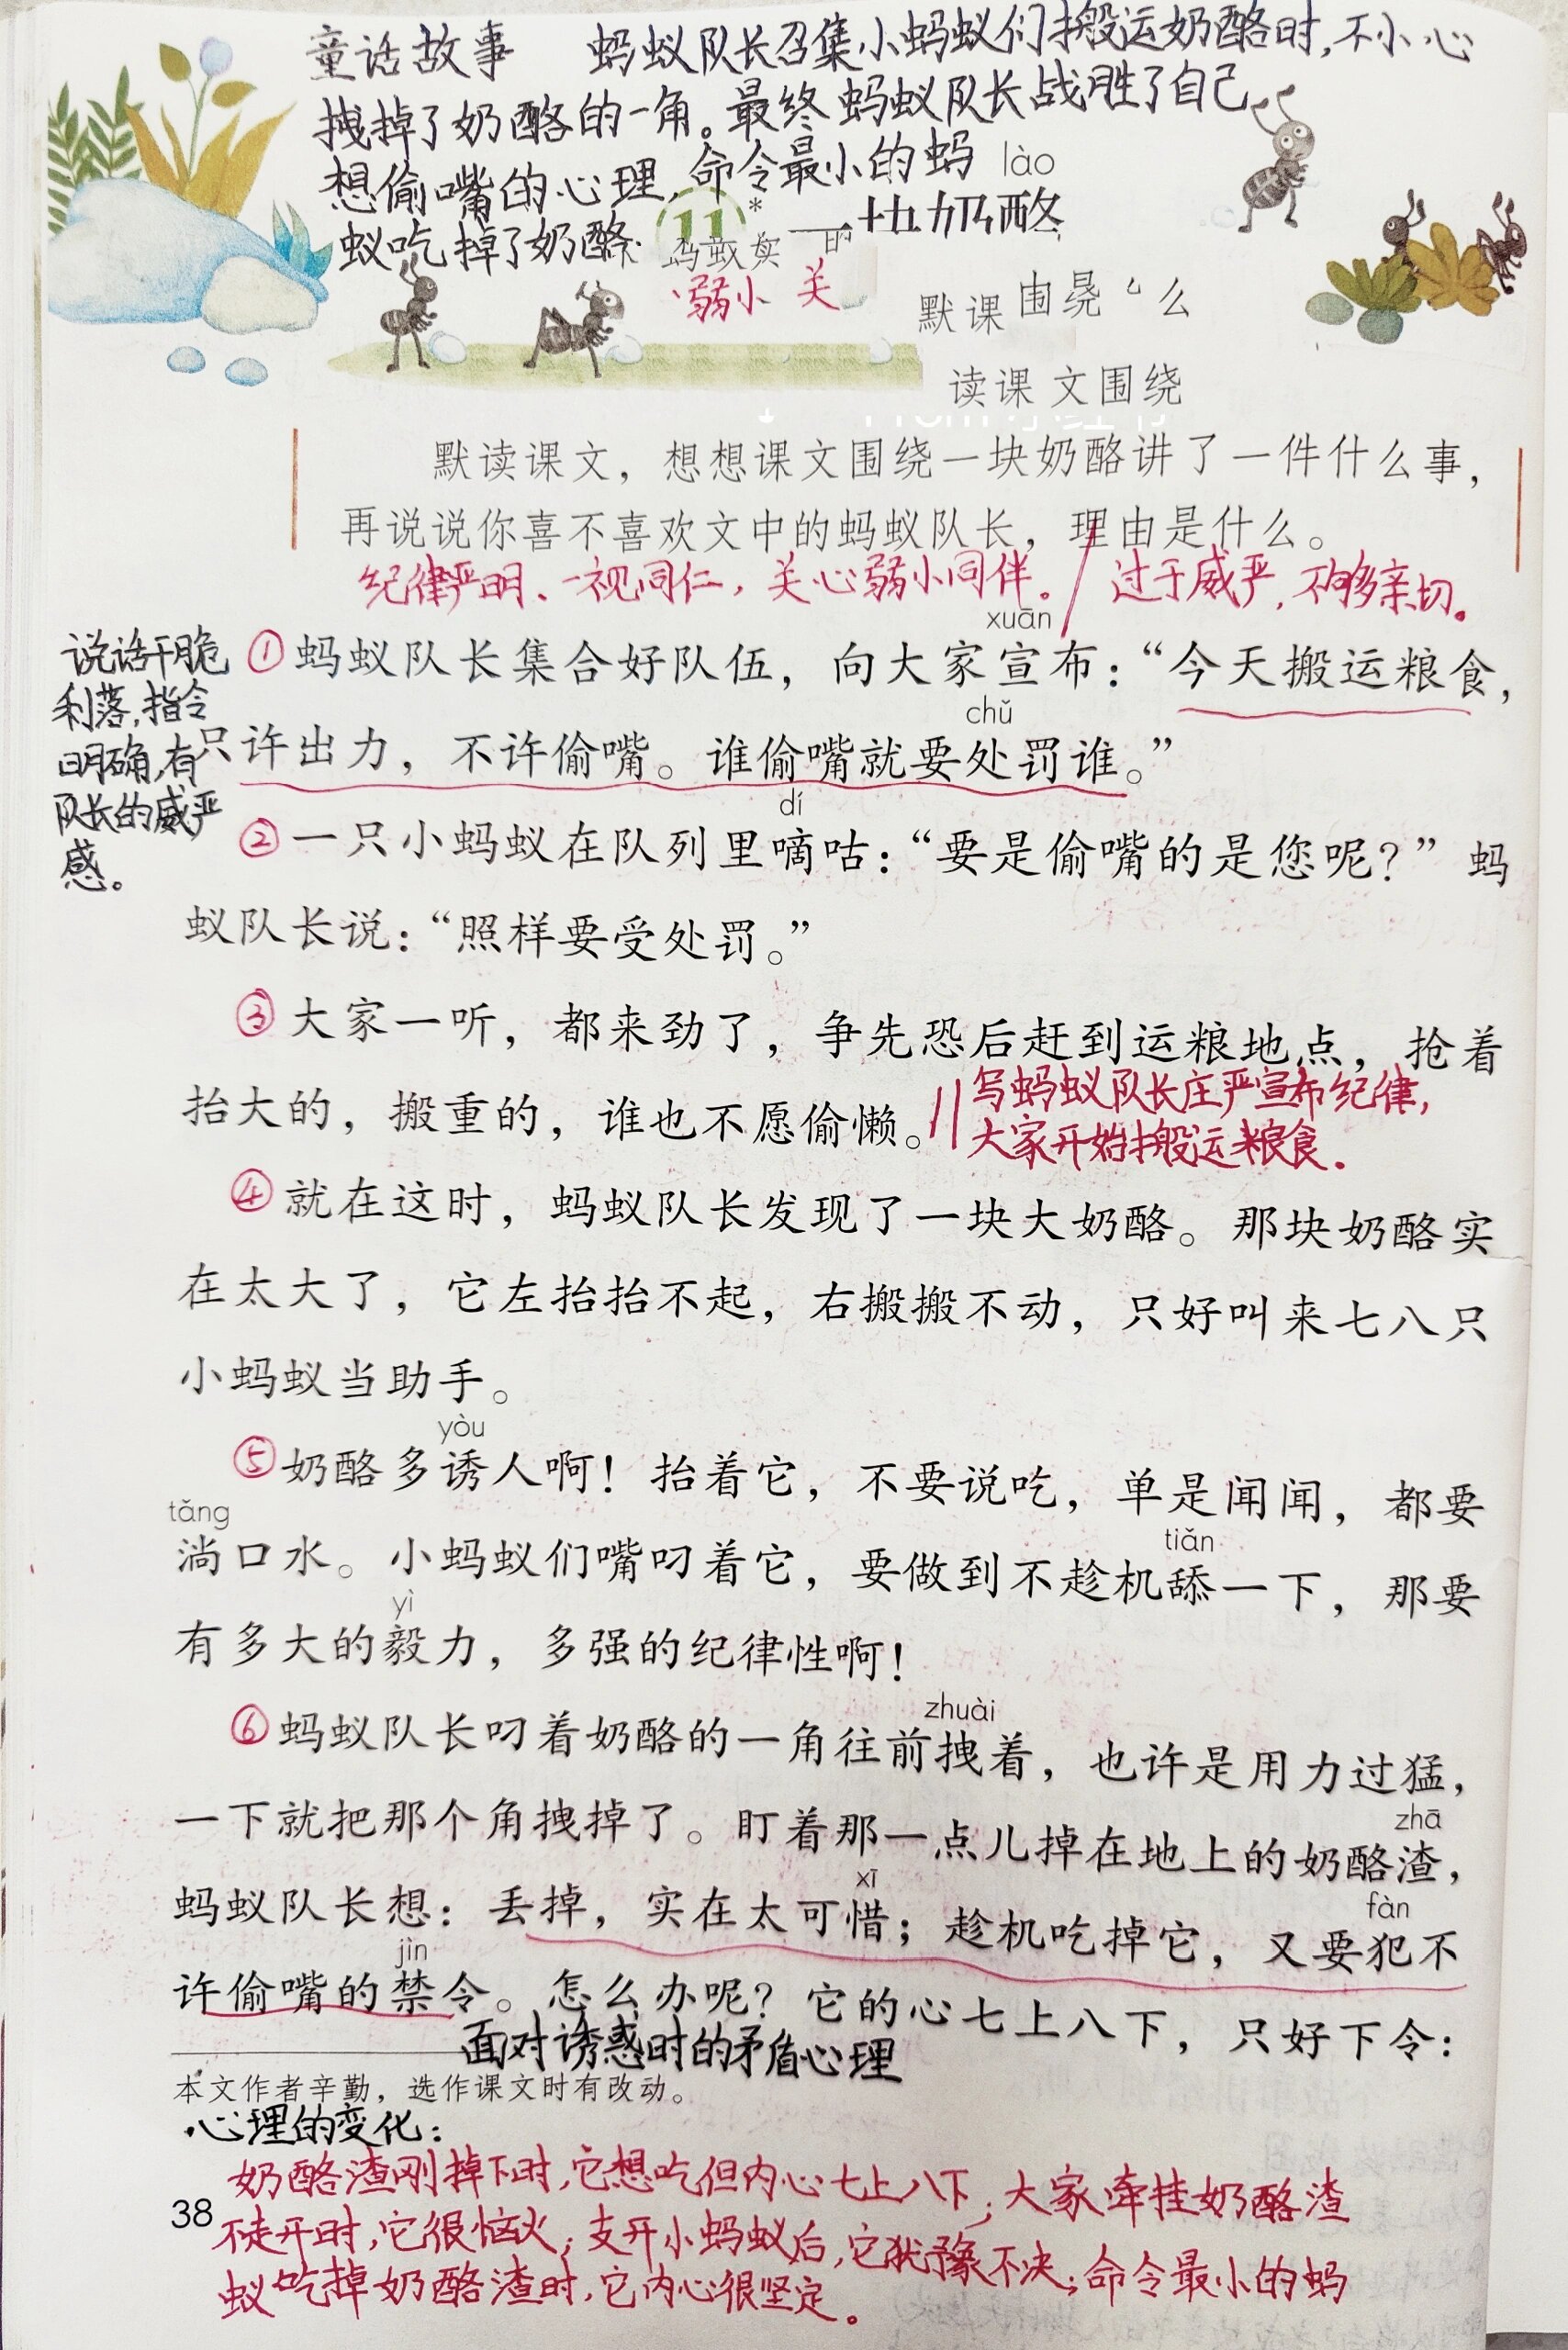 童话故事 蚂蚁队长召集小蚂蚁们搬运奶酪时,不小心
拽掉了奶酪的一角。最终蚂蚁队长战胜了自己
想偷嘴的心理,命令最小的蚂
蚁吃掉了奶酪.
lào
11*
一块奶酪
弱小 关
默课围绕 么
读课文围绕
默读课文，想想课文围绕一块奶酪讲了一件什么事，
再说说你喜不喜欢文中的蚂蚁队长，理由是什么。
纪律严明、一视同仁,关心弱小同伴。/过于威严,不够亲切。
说话干脆
利落,指令
明确,有
队长的威严
感。
xuān
①蚂蚁队长集合好队伍，向大家宣布：“今天搬运粮食，
chǔ
只许出力，不许偷嘴。谁偷嘴就要处罚谁。”
dí
②一只小蚂蚁在队列里嘀咕：“要是偷嘴的是您呢？”蚂
蚁队长说：“照样要受处罚。”
③大家一听，都来劲了，争先恐后赶到运粮地点，抢着
抬大的，搬重的，谁也不愿偷懒。
写蚂蚁队长庄严宣布纪律,
大家开始搬运粮食.
④就在这时，蚂蚁队长发现了一块大奶酪。那块奶酪实
在太大了，它左抬抬不起，右搬搬不动，只好叫来七八只
小蚂蚁当助手。
yòu
⑤奶酪多诱人啊！抬着它，不要说吃，单是闻闻，都要
tǎng tiǎn
淌口水。小蚂蚁们嘴叼着它，要做到不趁机舔一下，那要
yì
有多大的毅力，多强的纪律性啊！
zhuài
⑥蚂蚁队长叼着奶酪的一角往前拽着，也许是用力过猛，
zhā
一下就把那个角拽掉了。盯着那一点儿掉在地上的奶酪渣，
xī fàn
蚂蚁队长想：丢掉，实在太可惜；趁机吃掉它，又要犯不
jìn
许偷嘴的禁令。怎么办呢？它的心七上八下，只好下令：
面对诱惑时的矛盾心理
本文作者辛勤，选作课文时有改动。
心理的变化:
奶酪渣刚掉下时,它想吃但内心七上八下;大家牵挂奶酪渣
38
不走开时,它很恼火;支开小蚂蚁后,它犹豫不决;命令最小的蚂
蚁吃掉奶酪渣时,它内心很坚定。